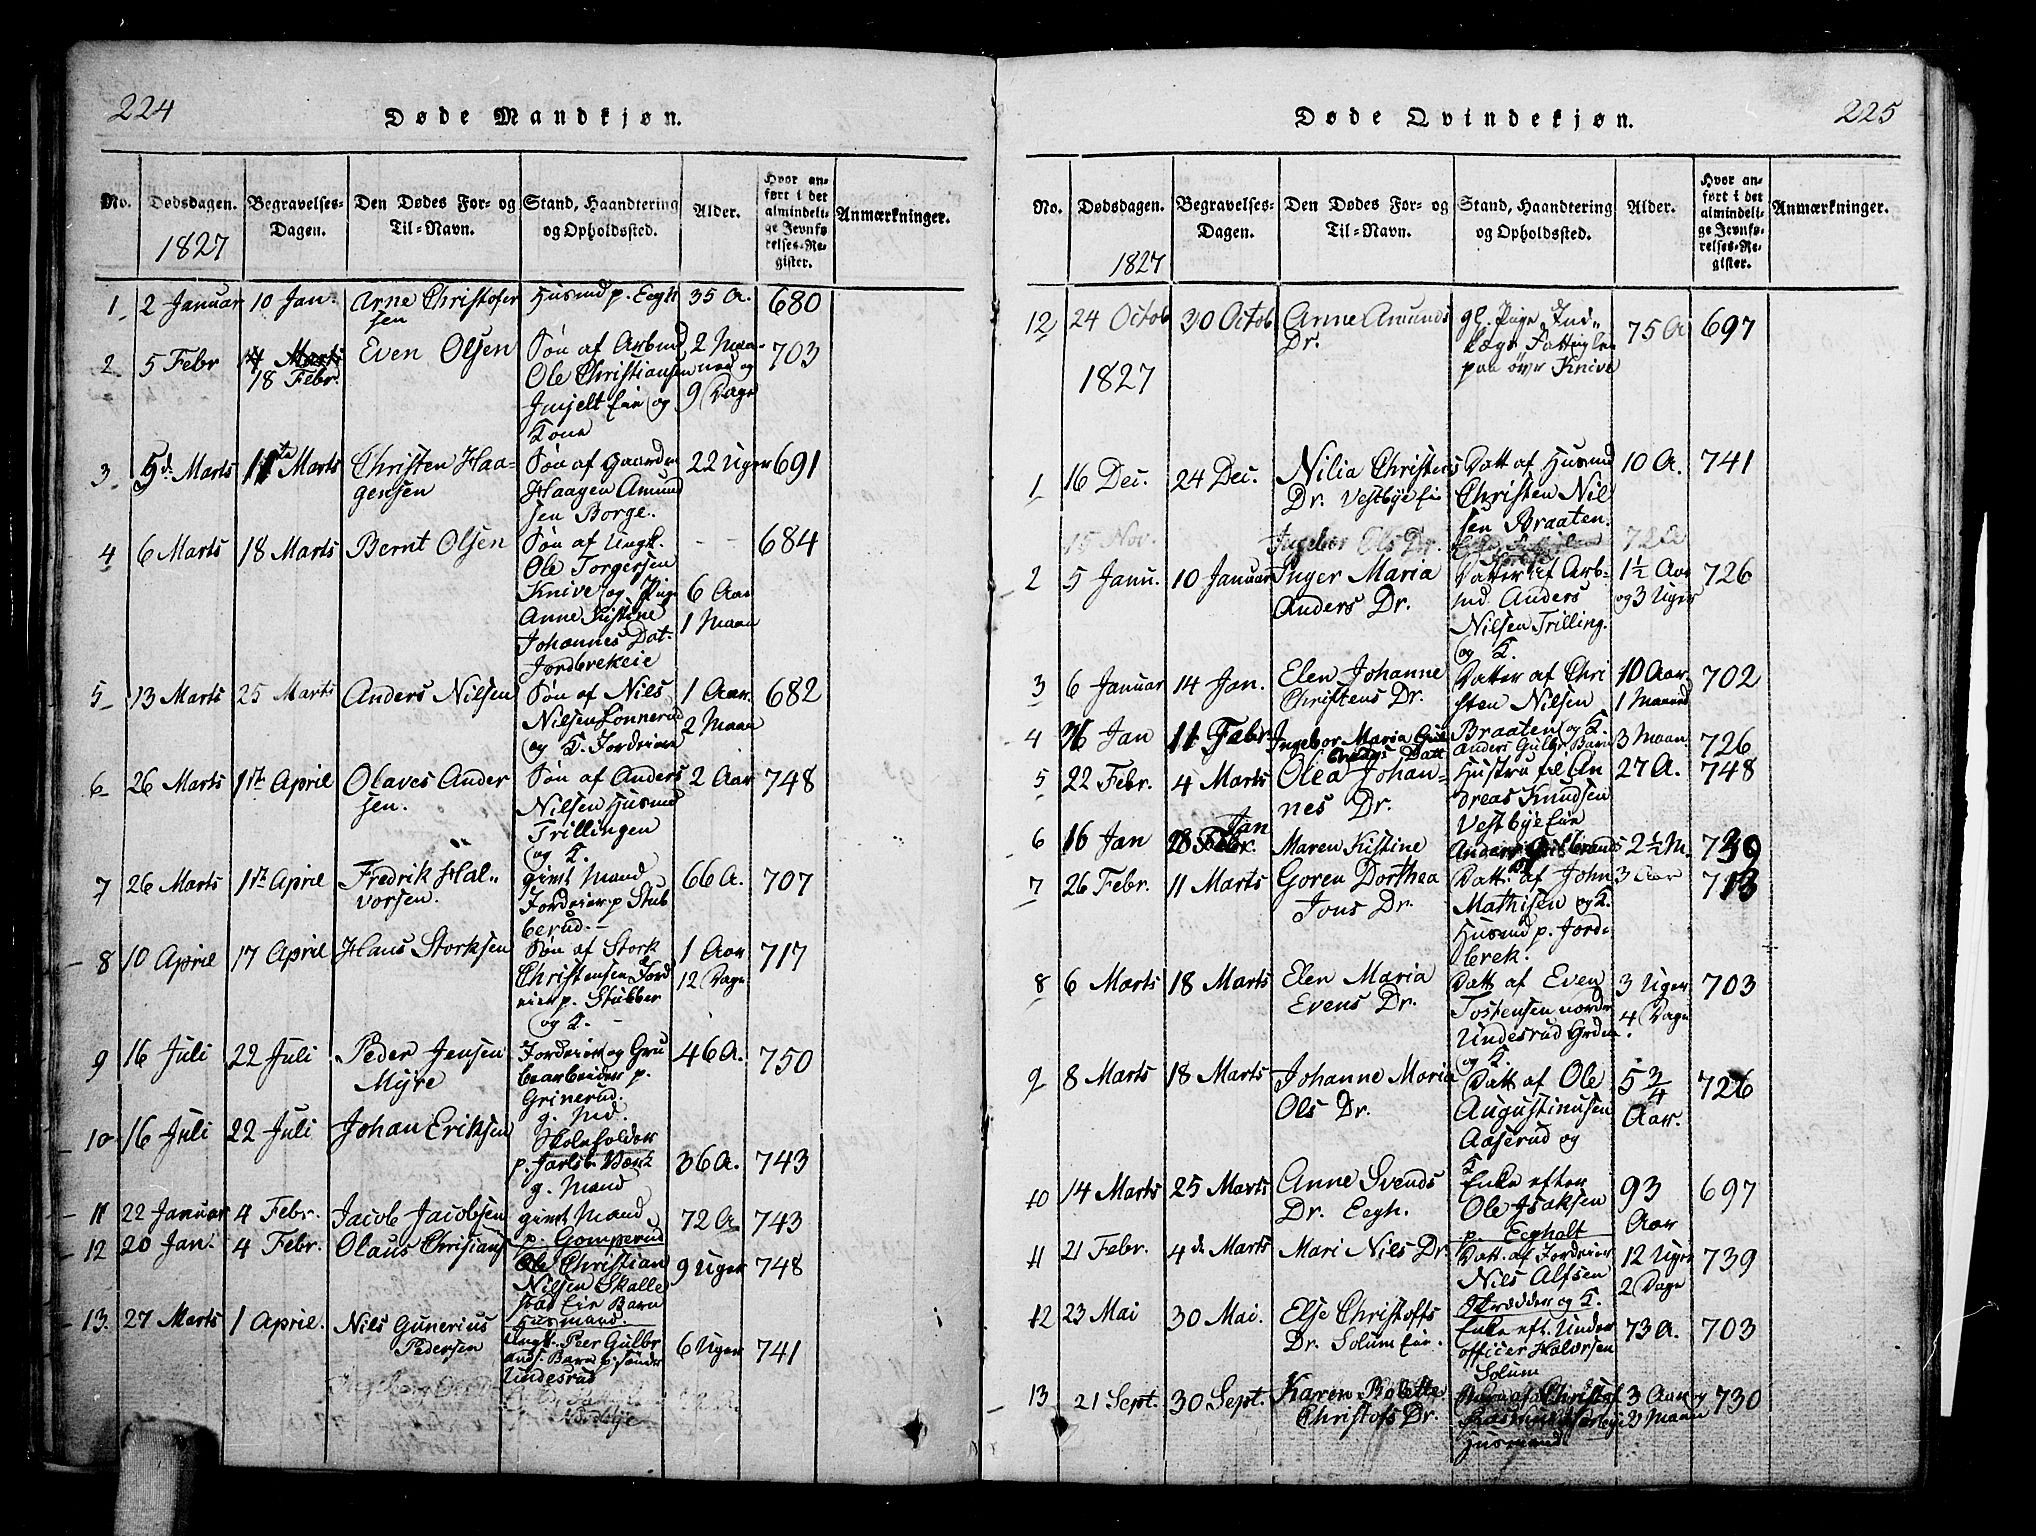 224
Døde Mandkjøn.
No. Dødsdagen. Begravelses-Dagen. Den Dødes For- og Til-Navn. Stand, Haandtering og Opholdssted. Alder. Hvor anført i det almindelige Jevnførelses-Register. Anmærkninger.
1827
1 2 Januar 10 Jan. Arne Christofer Husmd p. Eegh 35 A. 680
sen
2 5 Febr 18 Febr. Even Olsen Søn af Arbmd 2 Maa- 703
Ole Christiansen ned og
Eie og 9 Dage
Kone
3 5 d. Marts 11te Marts Christen Haa- Søn af Gaardm 22 Uger 691
gensen Haagen Amund
sen Borge.
4 6 Marts 18 Marts Bernt Olsen Søn af Ungk. - - 684
Ole Torgersen
Knive og Pige 6 Aar
Anne Kistine 1 Maan
Johannes Dat.
Jorderekeie
5 13 Marts 25 Marts Anders Nilsen Søn af Nils 1 Aar. 682
Nilsen Lonnerud 2 Maan
og K. Jordeier
6 26 Marts 1ste April Olaves Ander Søn af Anders 2 Aar 748
sen. Nilsen Husmd
Trillingen
og K.
7 26 Marts 1ste April Fredrik Hal- givt Mand 66 A. 707
vorsen. Jordeier p Stub
berud. -
8 10 April 17 April Hans Storksen Søn af Stork 1 Aar 717
Christensen Jord 12 Dage
eier p. Stubber
og K. -
9 16 Juli 22 Juli Peder Jensen Jordeier og Gru 46 A. 750
Myre bearbeider p.
Grinerud.
g. Md.
10 16 Juli 22 Juli Johan Eriksen Skoleholder
p. Jarlsb. Værk 36 A. 743
g. Mand
11 22 Januar 4 Febr. Jacob Jacobsen givt Mand 72 A 743
p. Gomperud
12 20 Jan. 4 Febr. Olaus Christians Ole Christian 9 Uger 748
Nilsen Skalle
stad Eie Barn
Husmand.
13. 27 Marts 1 April. Nils Gunerius Ungk. Peer Gulbr 6 Uger 741
Pedersen ands. Barn p. søndre
Undesrud
225
Døde Qvindekjøn.
No. Dødsdagen. Begravelses-Dagen. Den Dødes For- og Til-Navn. Stand, Haandtering og Opholdssted. Alder. Hvor anført i det almindelige Jevnførelses-Register. Anmærkninger.
1827
12 24 Octob 30 Octob Anne Amunds gl. Pige Ind- 75 A 697
Dr. lægs Fattiglem
paa øvr Knive
1827
1 16 Dec. 24 Dec. Nilia Christens Datt af Husmd 10 A. 741
Dr. Vestbye Eie Christen Nil
sen Braaten.
15 Nov. Ingebor Ols Dr. 72 A
2 5 Janu. 10 Januar Inger Maria Datter af Arb- 1½ Aar 726
Anders Dr. md. Anders og 3 Uger
Nilsen Trilling.
og K.
3 6 Januar 14 Jan. Elen Johanne Datter af Chri 10 Aar 702
Christens Dr. sten Nilsen 1 Maaned
Braaten og K.
4 Jan 11 Febr Ingebor Maria Gul Anders Gulbr Barn 3 Maan. 726
brands Datt
5 22 Febr. 4 Marts Olea Johan- Hustru til An 27 A. 748
nes Dr. dreas Knudsen
Vestbye Eie
6 16 Jan 28 Jan Maren Kistine Anders Gulbrands 2½ M. 739
7 26 Febr. 11 Marts Goren Dorthea Datt. af John 3 Aar 713
Jons Dr. Mathisen og K.
Husmd p. Jord
brek.
8 6 Marts 18 Marts Elen Maria Datt af Even 3 Uger 703
Evens Dr. Tostensen nordre 4 Dage
Undesrud Grden.
og K.
9 8 Marts 18 Marts Johanne Maria Datt af Ole 5 3/4 726
Ols Dr. Augustinusen Aar.
Aaserud og
K
10 14 Marts 25 Marts Anne Svends Enke efter 93 697
Dr. Eegh. Ole Isaksen Aar
p. Eegholt
11 21 Febr. 4 de Marts Mari Nils Dr. Datt. af Jordeier 12 Uger 739
Nils Alfsen 2 Dage
Skrædder og K.
12 23 Mai 30 Mai. Else Christoffs Enke eft. Under 73 A. 703
Dr. Solum Eie. officer Halvorsen
Solum
13 21 Sept. 30 Sept. Karen Bolette Christof 3 Aar og 730
Christofs Dr. 2 Maan
Husmand